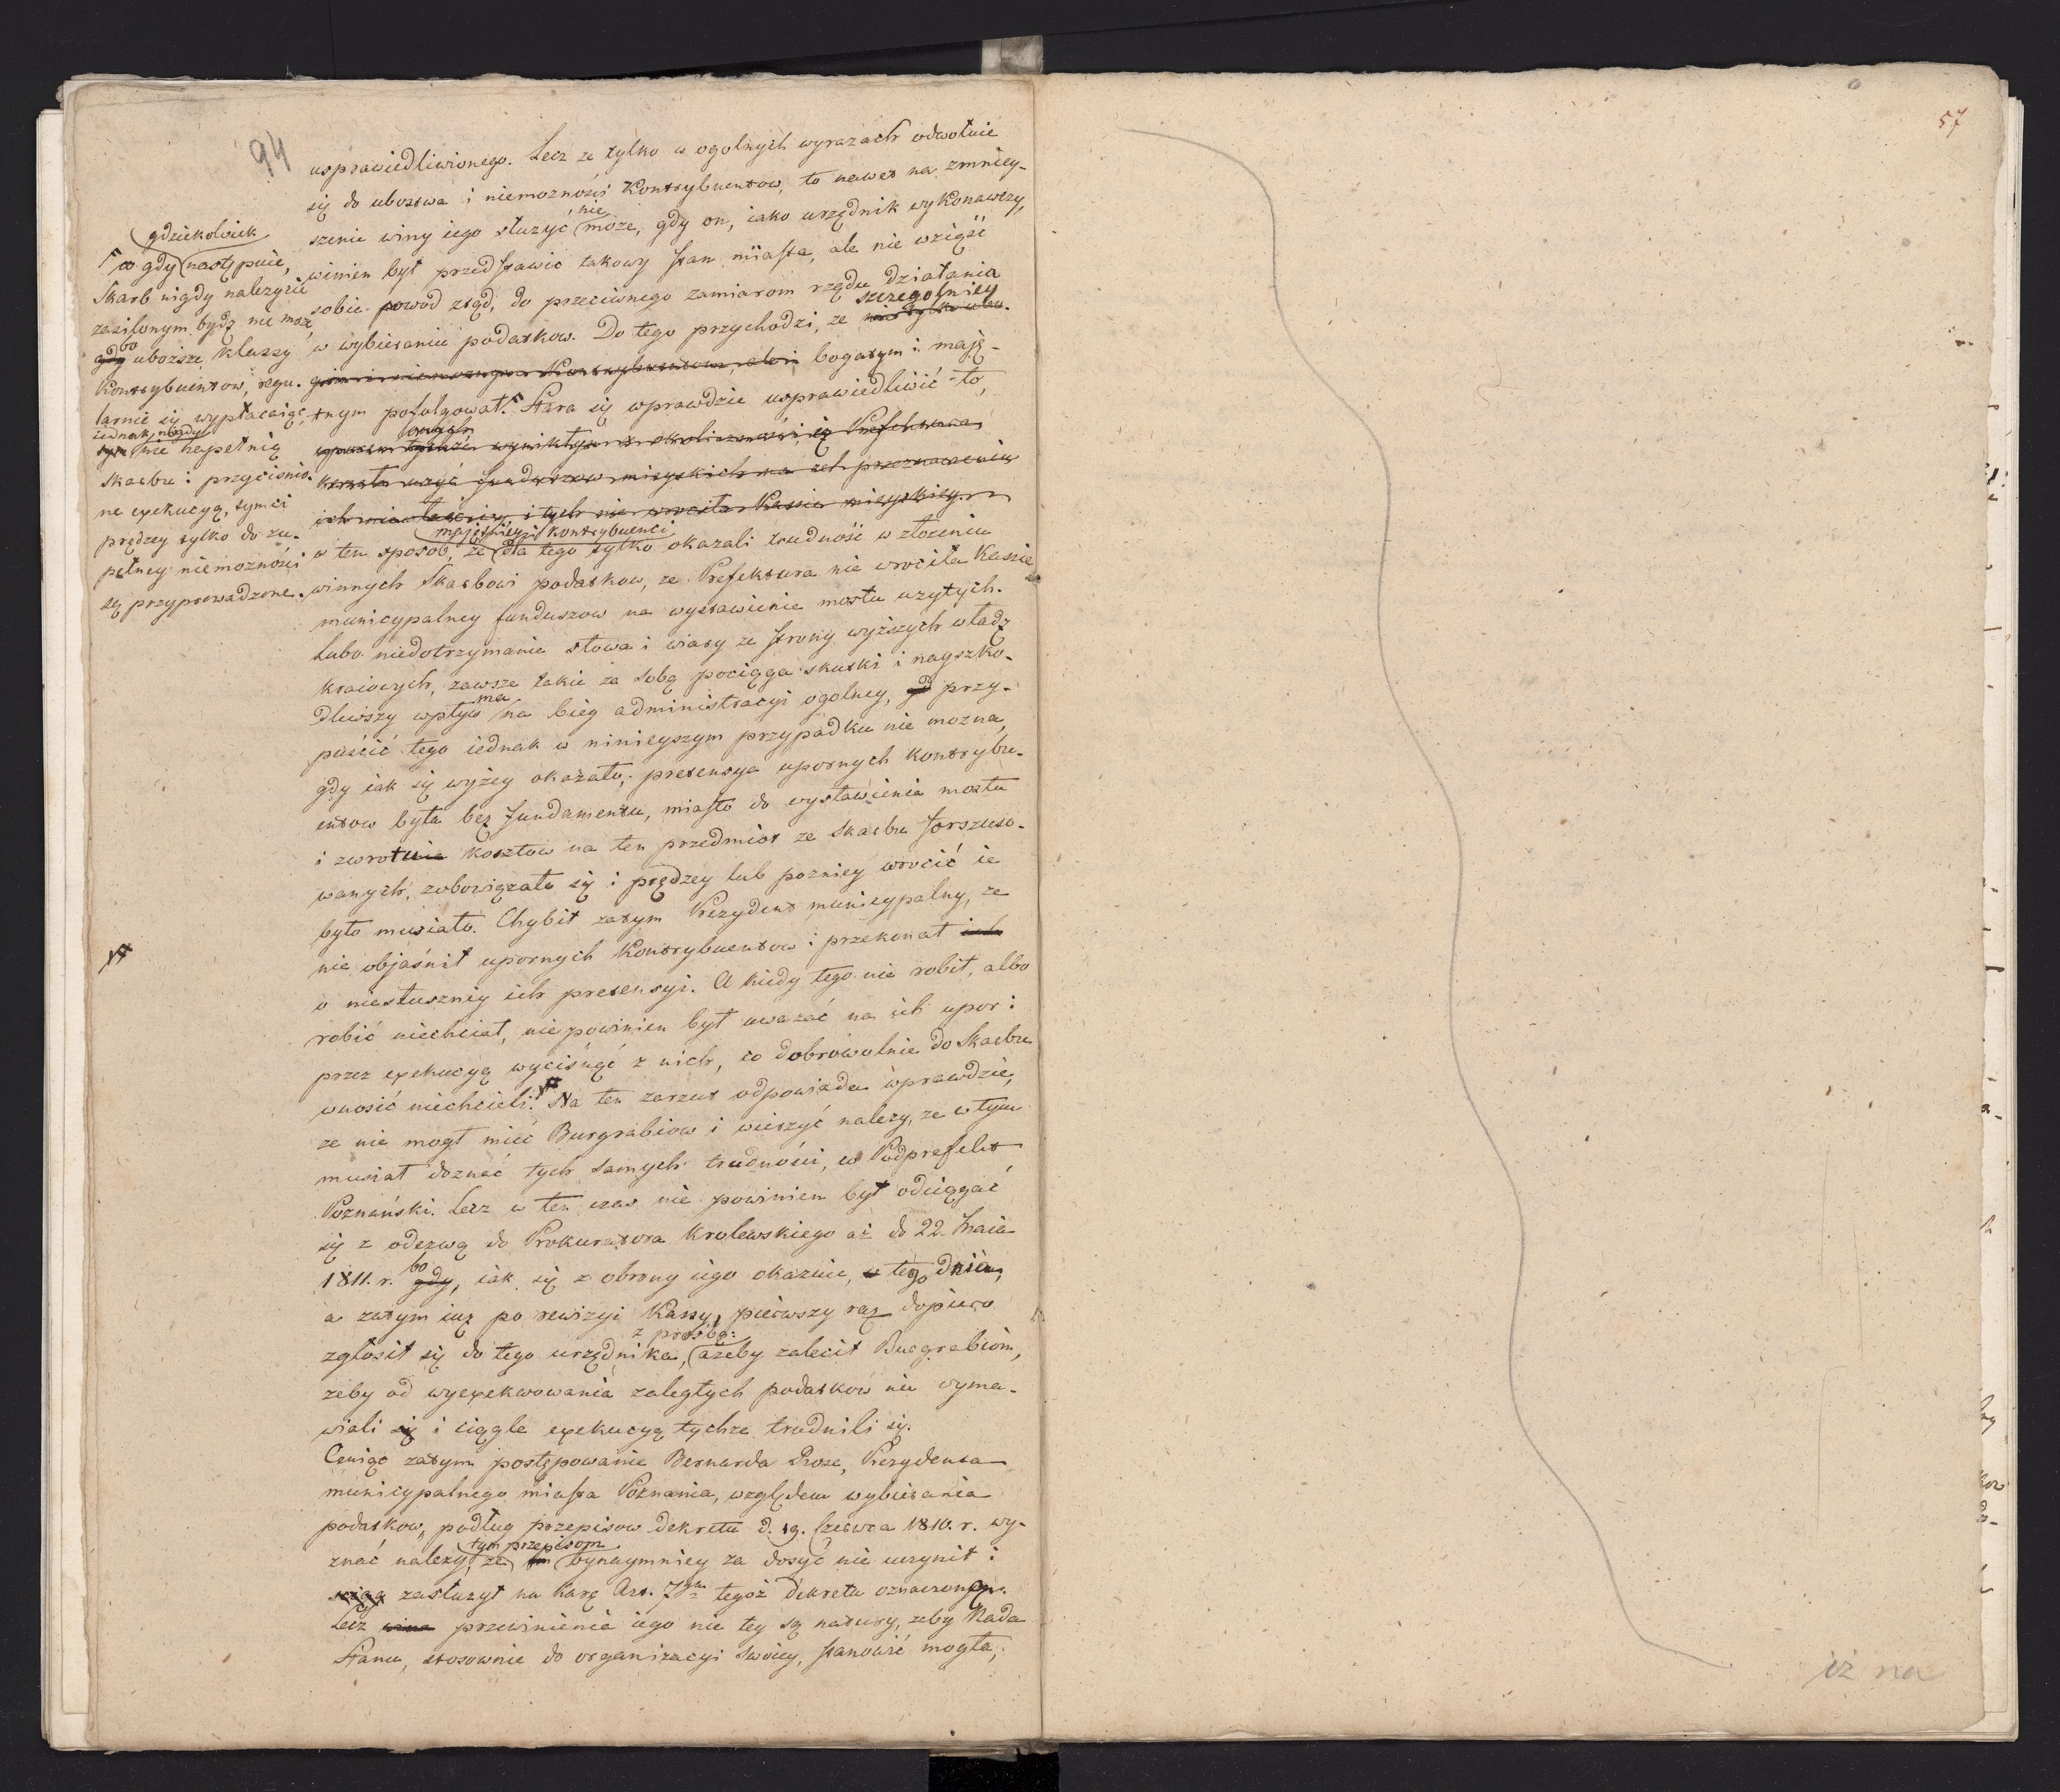 94
usprawiedliwionego. Lecz ze tylko w ogolnych wyrazach odwołuie
się do ubostwa i niemoznośći Kontrybuentow, to nawet na zmniey-
nie
szenie winy iego słuzyć moze, gdy on, iako urzędnik wykonawczy,
winien był przedstawić takowy stan miasta, ale nie wziąść
sobie powod ztąd, do przeciwnego zamiarom rządu działania
szczegolniey
w wybieraniu podatkow. Do tego przychodzi, ze nie tylko
bogatym i mają-
tnym pofolgował. Stara się wprawdzie usprawiedliwić to,
majętnieysi kontrybuenci
w ten sposob, ze dla tego tylko okazali trudność w złozeniu
winnych Skarbowi podatkow, ze Prefektura nie wrociła Kassie
municypalney funduszow na wystawienie mostu uzytych.
Lubo niedotrzymanie słowa i wiary ze strony wyższych władz
kraiowych, zawsze takie za sobą pociąga skutki i nayszko-
ma
dliwszy wpływ na bieg administracyi ogolney, przy-
puścić tego iednak w ninieyszym przypadku nie mozna,
gdy iak się wyżey okazało, pretensya upornych kontrybu-
entow była bez fundamentu, miasto do wystawienia mostu
i zwrotu kosztow na ten przedmiot ze Skarbu forszuso-
wanych, zobowiązało się i prędzey lub pozniey wrocić ie
było musiało. Chybił zatym Prezydent municypalny, ze
nie objaśnił upornych Kontrybuentow i przekonał ich
o niesłuszney ich pretensyi. A kiedy tego nie robił, albo
robić niechciał, nie powinien był uwazać na ich upor i
przez exekucyą wyciśnąć z nich, co dobrowolnie do Skarbu
wnosić niechcieli. Na ten zarzut odpowiada wprawdzie,
ze nie mogł mieć Burgrabiow i wierzyć nalezy, ze w tym
musiał doznać tych samych trudności, co Podprefekt
Poznański. Lecz w ten czas nie powinien był odciągać
się z odezwą do Prokuratora Krolewskiego aż do 22. Maia
bo
1811. r. gdy, iak się z obrony iego okazuie, w tego dnia,
a zatym iuz po rewizyi Kassy, pierwszy raz dopiero
z prosbą:
zgłosił się do tego urzędnika, ażeby zalecił Burgrabiom,
zeby od wyexekwowania zaległych podatkow nie wyma-
wiali się i ciągle exekucyą tychze trudnili się.
Ceniąc zatym postępowanie Bernarda Rose, Prezydenta
municypalnego miasta Poznania, względem wybierania
podatkow, podług przepisow dekretu d. 19. Czerwca 1810. r. wy-
tym przepisom
znać nalezy, ze on bynaymniey za dosyć nie uczynił i
zasłuzył na karę Art. 7ym tegoż dekretu oznaczoną.
Lecz wina przewinienia iego nie tey są natury, zeby Rada
Stanu, stosownie do organizacyi swoiey, stanowić mogła,
gdziekolwiek
co gdy następuie,
Skarb nigdy nalezycie
zasilonym bydz nie moze,
bo
gdy uboższe klassy
Kontrybuentow, regu-
larnie się wypłacaiąc,
iednak nigdy
nie napełnią
skarbu i przyciśnio-
ne exekucyą, tymci
prędzey tylko do zu-
pełney niemozności
są przyprowadzone.
57
iż na